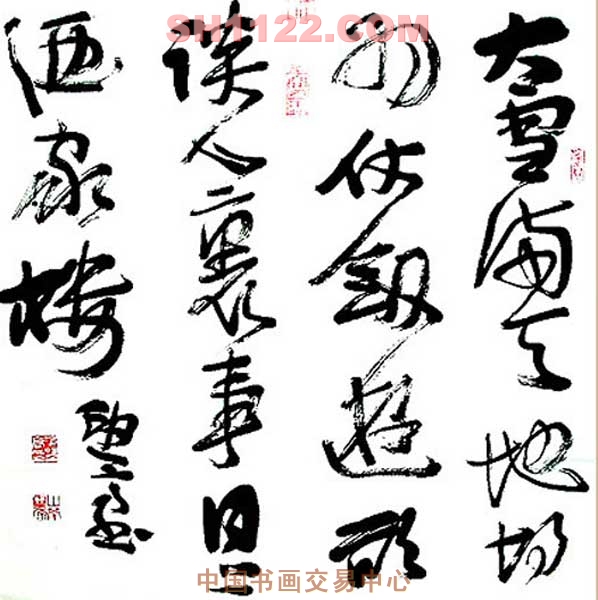 SH1122.COM
大雪滿天地胡
为仗劍遊欲
談心裏事同上
酒家樓
中国书画交易中心